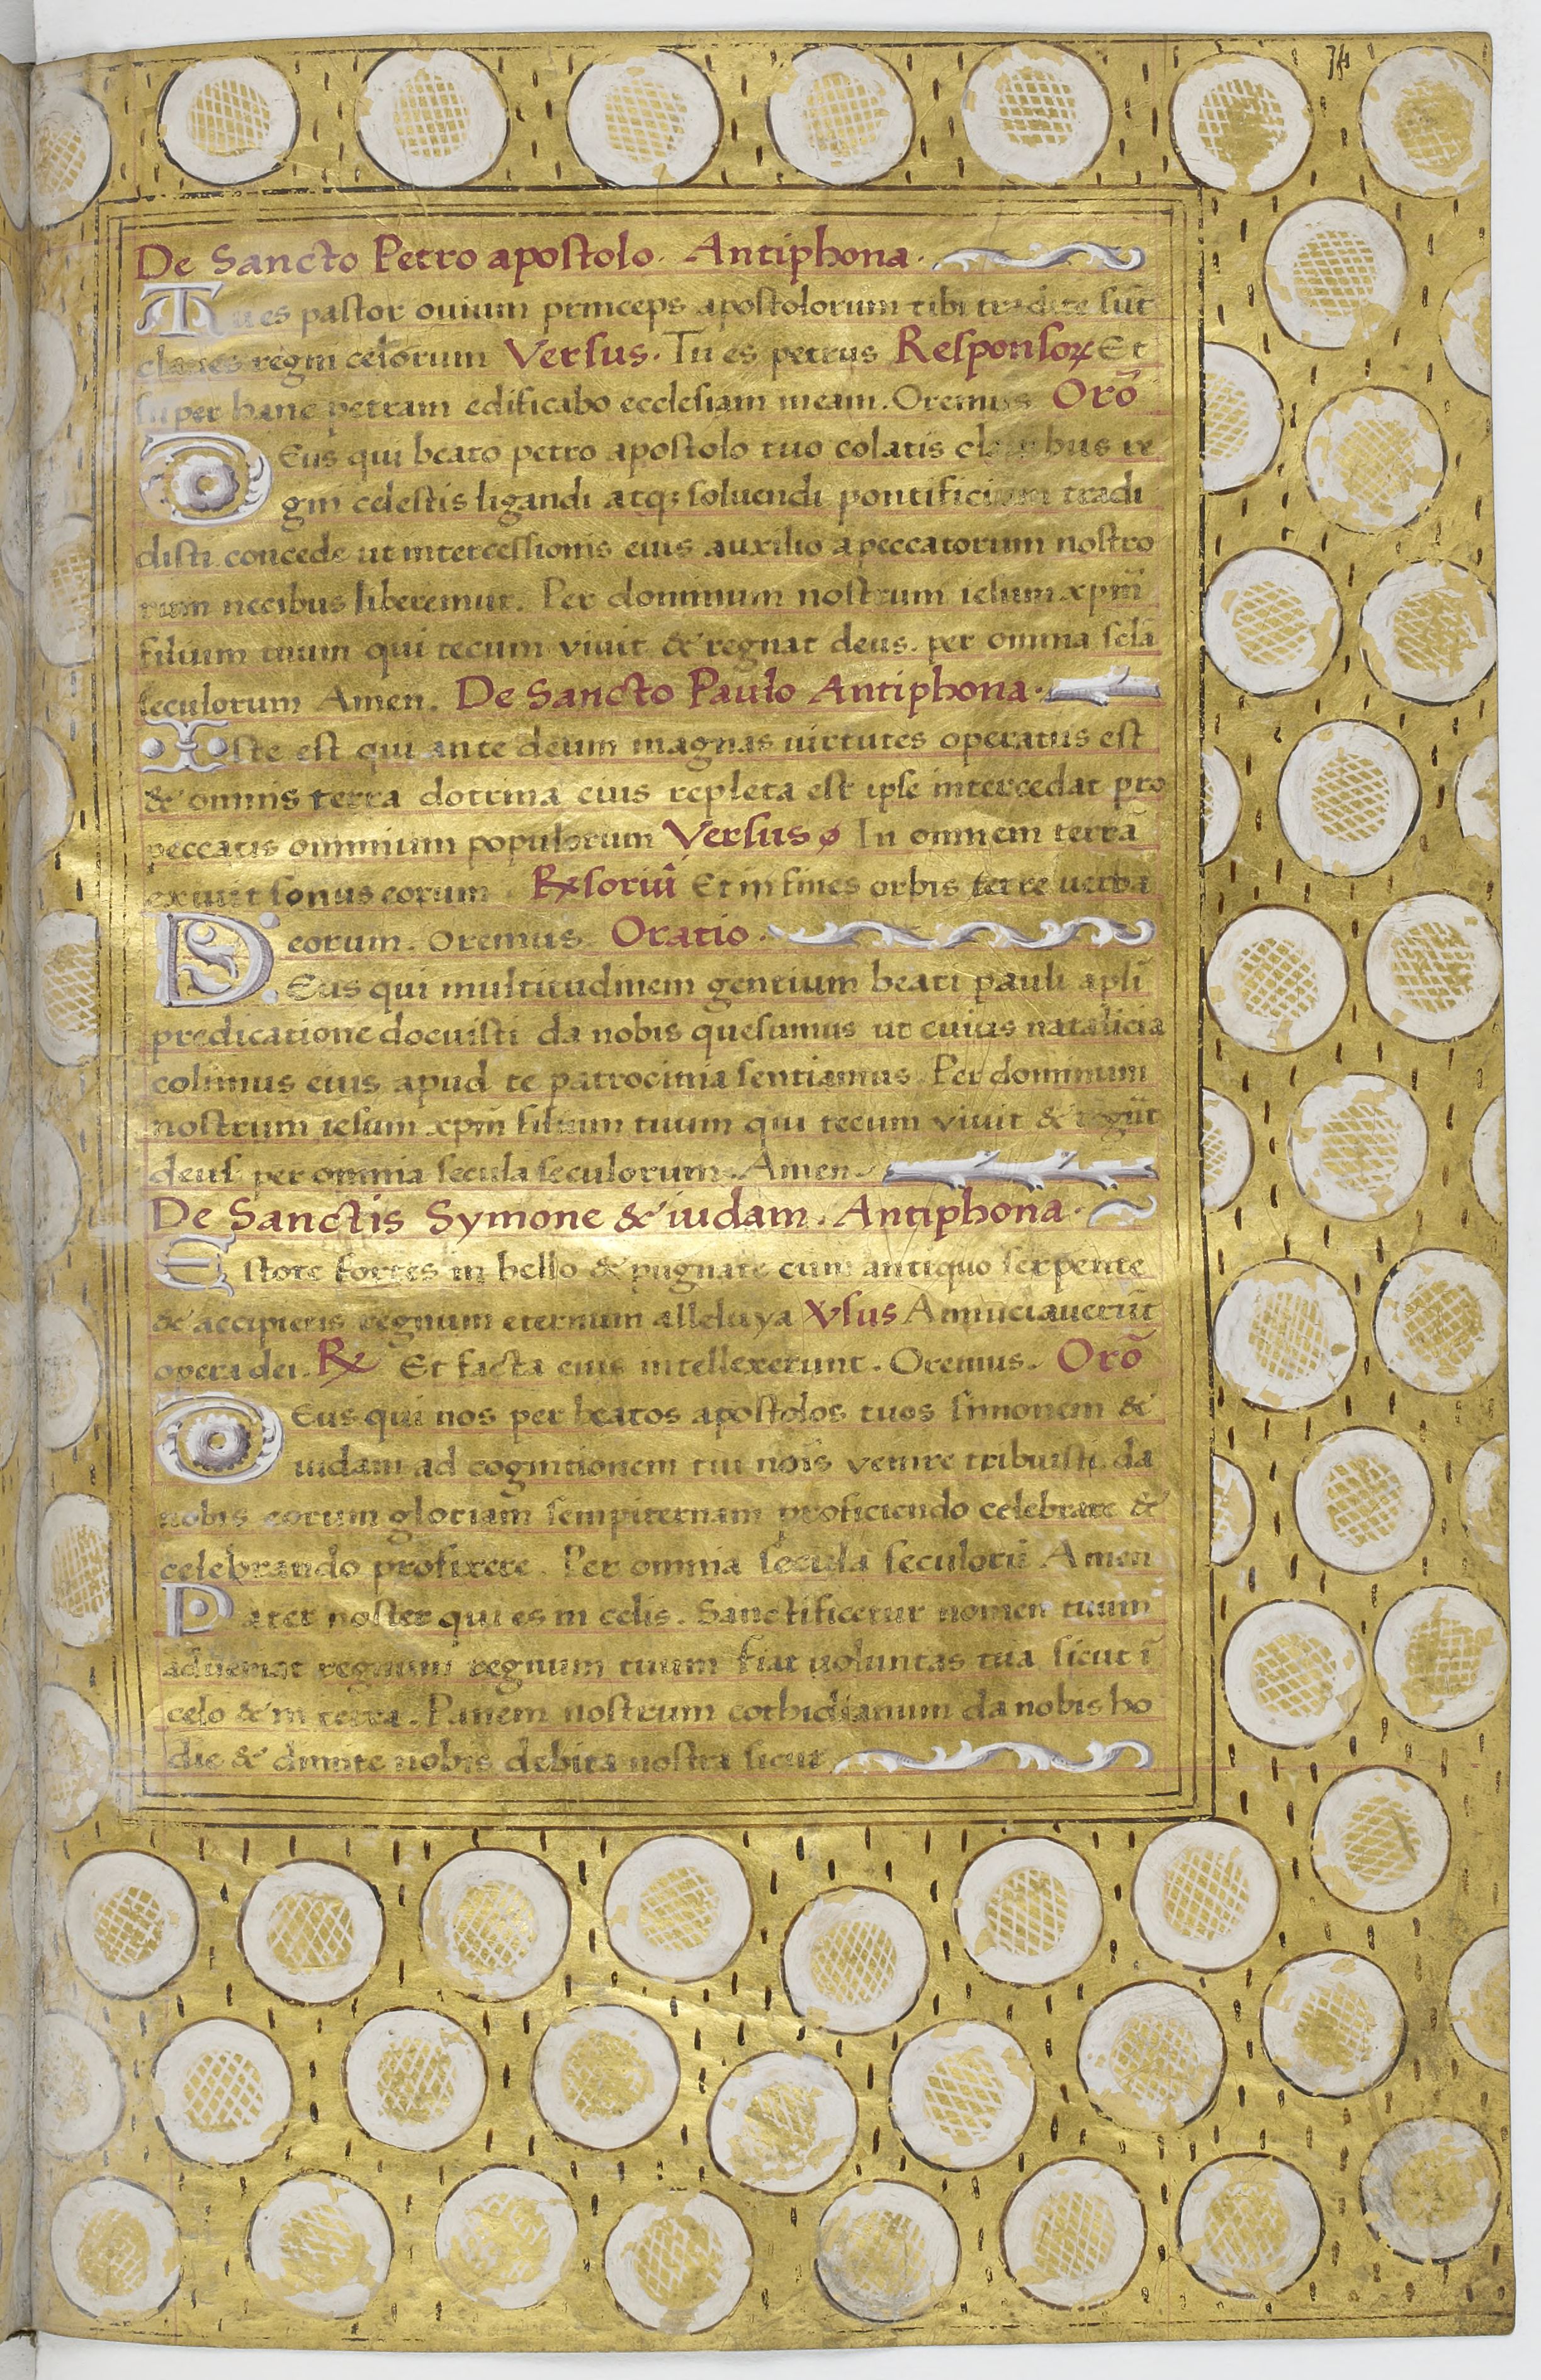 34
De Sancto Petro apostolo. Antiphona.
Tu es pastor ouium princeps apostolorum tibi tradite sūt
claues regni celorum Versus. Tu es petrus Responsoꝝ Et
super hanc petram edificabo ecclesiam meam. Oremus Orō
Deus qui beato petro apostolo tuo colatis clauibus re
gni celestis ligandi atqꝫ soluendi pontificium tradi
disti concede ut intercessionis eius auxilio a peccatorum nostro
rum necibus liberemur. Per dominum nostrum iesum xpm̄
filium tuum qui tecum viuit & regnat deus. per omnia scl̄a
seculorum Amen. De Sancto Paulo Antiphona.
Iste est qui ante deum magnas uirtutes operatus est
& omnis terra dotrina eius repleta est ipse intercedat pro
peccatis omnium populorum Versus In omnem terrā
exiuit sonus eorum. R℟soriū Et in fines orbis terre uerba
eorum. Oremus. Oratio.
Deus qui multitudinem gentium beati pauli apl̄i
predicatione docuisti da nobis quesumus ut cuius natalicia
colimus eius apud te patrocinia sentiamus. Per dominum
nostrum iesum xpm̄ filium tuum qui tecum viuit & regn̄t
deus per omnia secula seculorum. Amen.
De Sanctis Symone & iudam. Antiphona.
Estote fortes in bello & pugnate cum antiquo serpente
& accipietis regnum eternum alleluya Vsus Annuciauerūt
opera dei. ℟ Et facta eius intellexerunt. Oremus. Orō
Deus qui nos per beatos apostolos tuos simonem &
iudam ad cognitionem tui nōis venire tribuisti da
nobis eorum gloriam sempiternam proficiendo celebrare &
celebrando proficere. Per omnia secula seculorū Amen
Pater noster qui es in celis. Sanctificetur nomen tuum
adueniat regnum regnum tuum fiat uoluntas tua sicut ī
celo & in terra. Panem nostrum cothidianum da nobis ho
die & dimite nobis debita nostra sicut